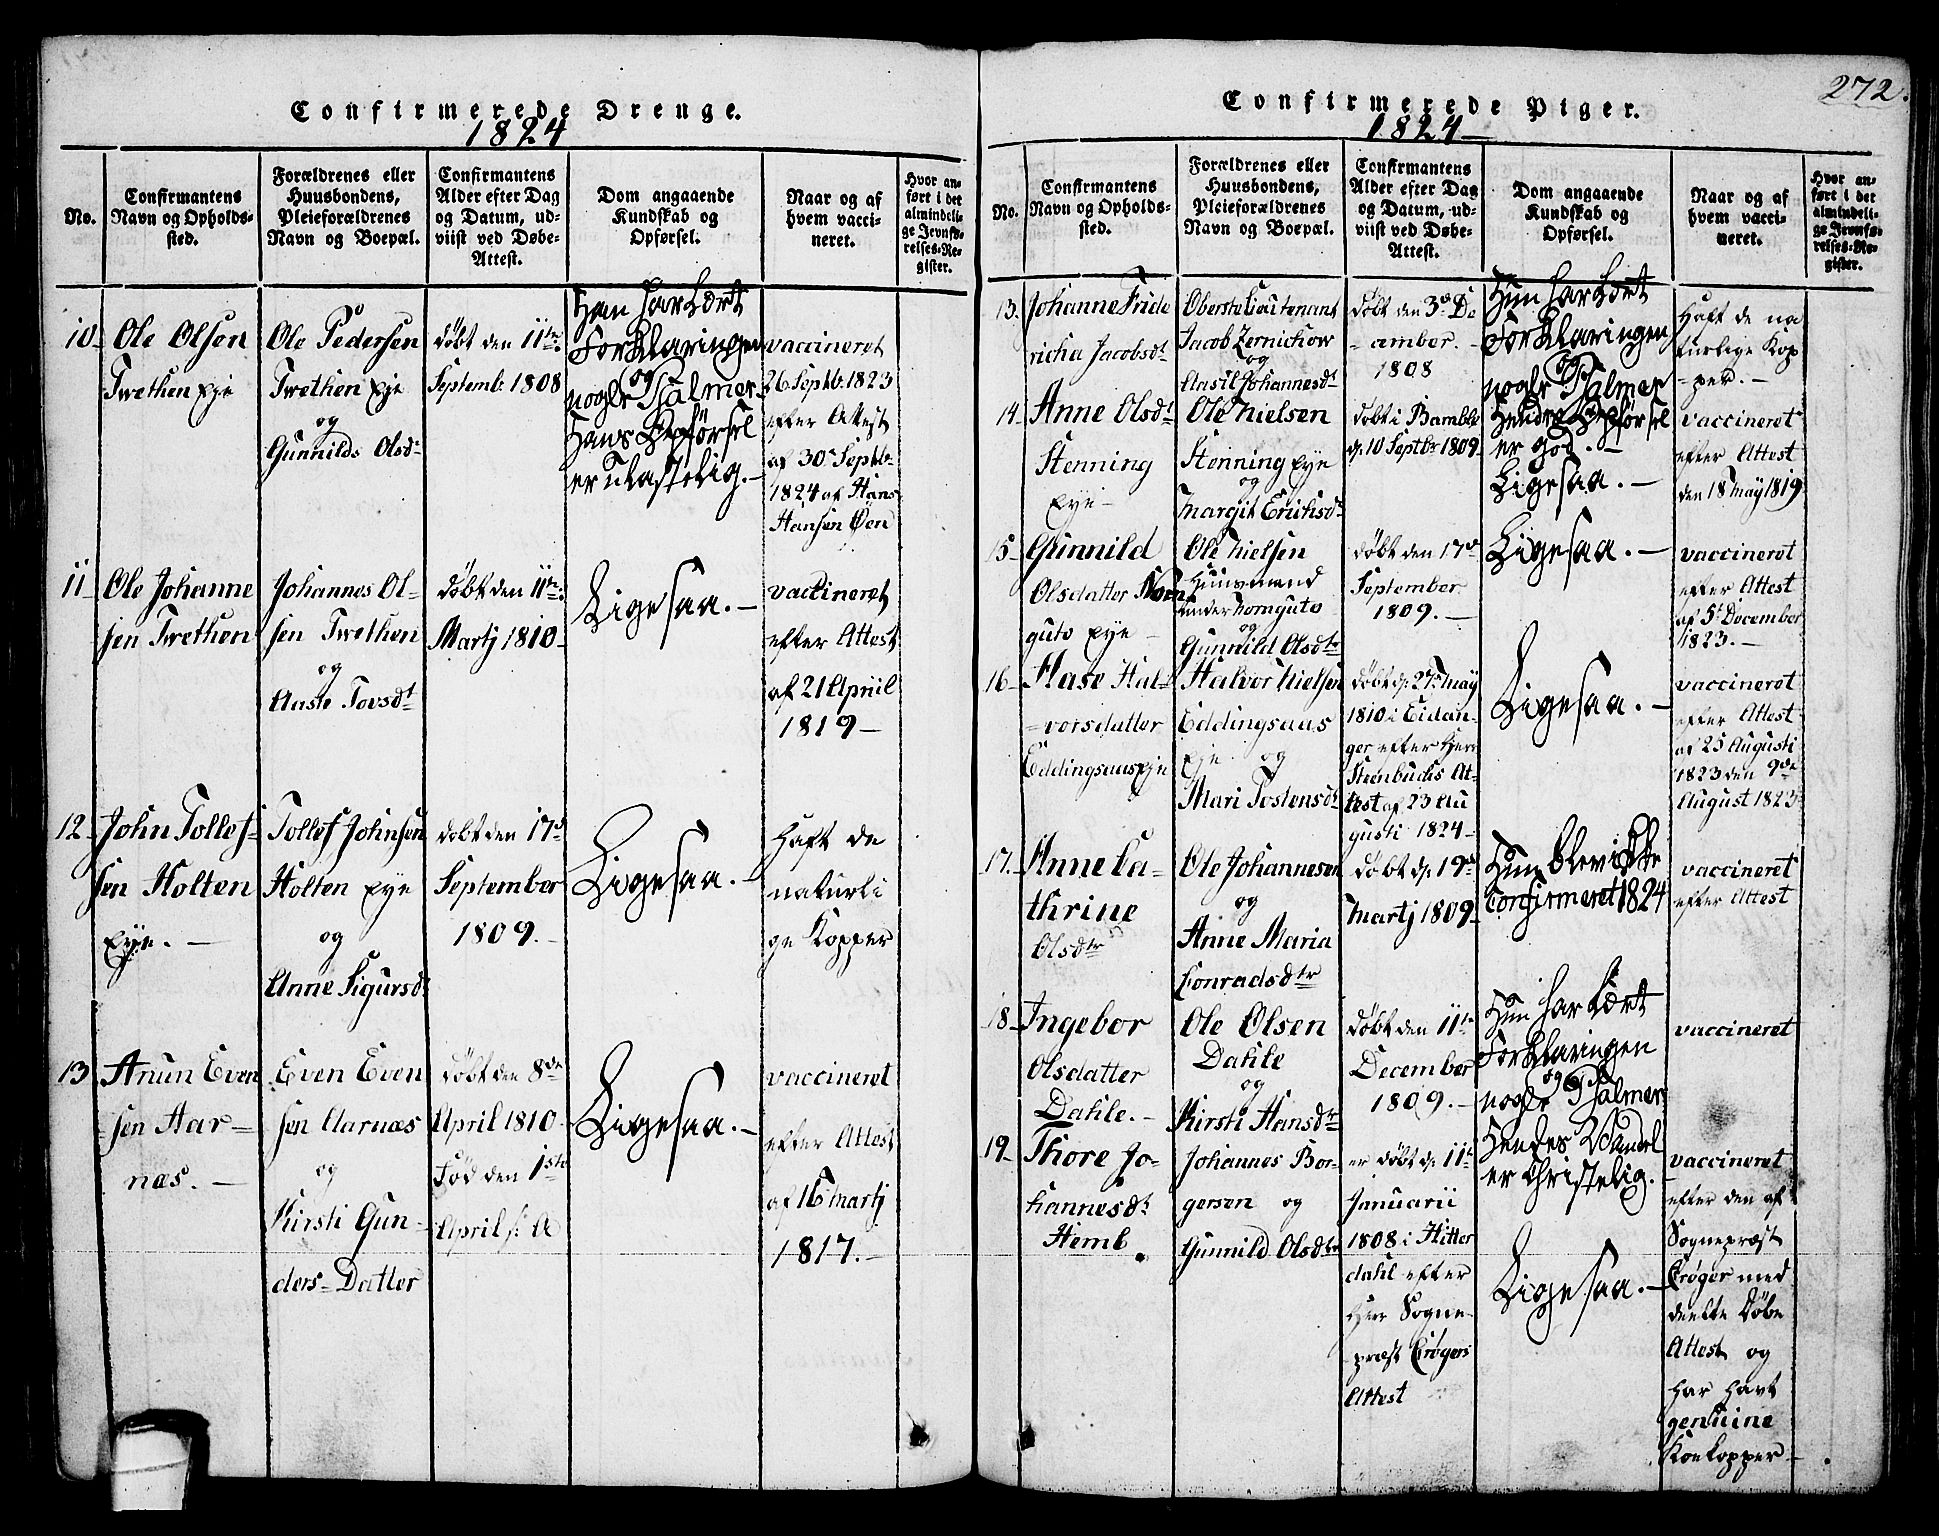 Confirmerede Drenge.
1824
No.
Confirmantens
Navn og Opholds-
sted.
Forældrenes eller
Huusbondens,
Pleieforældrenes
Navn og Boepæl.
Confirmantens
Alder efter Dag
og Datum, ud-
viist ved Døbe-
Attest.
Dom angaaende
Kundskab og
Opførsel.
Naar og af
hvem vacci-
neret.
Hvor an-
ført i det
almindeli-
ge Jevnfø-
relses-Re-
gister.
10
Ole Olsen
Twethen Eje
Ole Pedersen
Twethen Eje
og
Gunnilds Olsd.
døbt den 11te
Septemb: 1808
Han har Lært
Forklaringen
og
nogle Psalmer.
Hans Opförsel
er ulastelig.-
vaccineret
26 Septb: 1823
efter Attest
af 30 Septbr
1824 af Hans
Hansen Øen
11
Ole Johanne
sen Twethen
Johannes Ol-
sen Twethen
og
Aaste Tovsdt
døbt den 11te
Martj 1810
Ligesaa.-
vaccineret
efter Attest
af 21 Apriil
1819-
12
John Tollef-
sen Holten
Eye.-
Tollef Johnsen
Holten Eye
og
Anne Sigursd:
døbt den 17d
September
1809.
Ligesaa.-
Haft de
naturli
ge Kopper
13
Anun Even
sen Aar-
næs.-
Even Even
sen Aarnæs
og
Kirsti Gun-
ders-Datter
døbt den 8de
April 1810
Fød den 1ste
April s: A
Ligesaa.-
vaccineret
efter Attest
af 16 Martj
1817.-
272.
Confirmerede Piger.
1824
No.
Confirmantens
Navn og Opholds-
sted.
Forældrenes eller
Huusbondens,
Pleieforældrenes
Navn og Boepæl.
Confirmantens
Alder efter Dag
og Datum, ud-
viist ved Døbe-
Attest.
Dom angaaende
Kundskab og
Opførsel.
Naar og af
hvem vacci-
neret.
Hvor an-
ført i det
almindeli-
ge Jevnfø-
relses-Re-
gister.
13.
Johanne Fride
richa Jacobsdt
Oberstlieutenant
Jacob Zernichow
og
Aasil Johannesdt
Døbt den 3de De
cember.
1808
Hun har Lært
Forklaringen
og
nogle Psalmer
Hendes Opførsel
er god.-
Haft de na
turlige Kop
-per.-
14
Anne Olsdt
Stenning
Eye-
Ole Nielsen
Stenning Eye
og
Margit Erichsdt
døbt i Bamble
d. 10 Septbr 1809
Ligesaa.-
vaccineret
efter Attest
den 18 May 1819
15
Gunnild
Olsdatter Norn
guto Eye-
Ole Nielsen
Huusmand
under Nornguto
og
Gunnild Olsdtr
døbt den 17de
September
1809.-
Ligesaa.-
vaccineret
efter Attest
af 5t December
1823.-
16
Aase Hal-
vorsdatter
Eddingsaas Eje
Halvor Nielsen
Eddingsaas
Eje og
Mari Tostensdt
døbt d. 27 May
1810 i Eidan-
ger efter Herr
Steenbuchs At-
test af 23 Au
gusti 1824
Ligesaa.-
vaccineret
efter Attest
af 25 Augusti
1823 den 9de
August 1823
17.
Anne Ca-
thrine
Olsdtr
Ole Johannesen
og
Anne Maria
Conradsdtr
døbt d. 19de
Martj 1809
Hun blev ikke
Confirmeret 1824
vaccineret
efter Attest
18
Ingebor
Olsdatter
Dahle.-
Ole Olsen
Dahle
og
Kirsti Hansdtr
døbt den 11te
December
1809.-
Hun har Lært
Forklaringen
og
nogle Psalmer
Hendes Vandel
er Christelig.
vaccineret
19
Thore Jo-
hannesdt
Hemb.
Johannes Bor-
gersen og
Gunnild Olsdtr
er døbt d. 11te
Januarii
1808 i Hitter
dahl efter
Herr Sogne-
præst Crøgers
Attest
Ligesaa.-
vaccineret
efter den af
Sognepræst
Crøger med
deelte Døbe
Attest og
har havt
genuine
Koekopper-